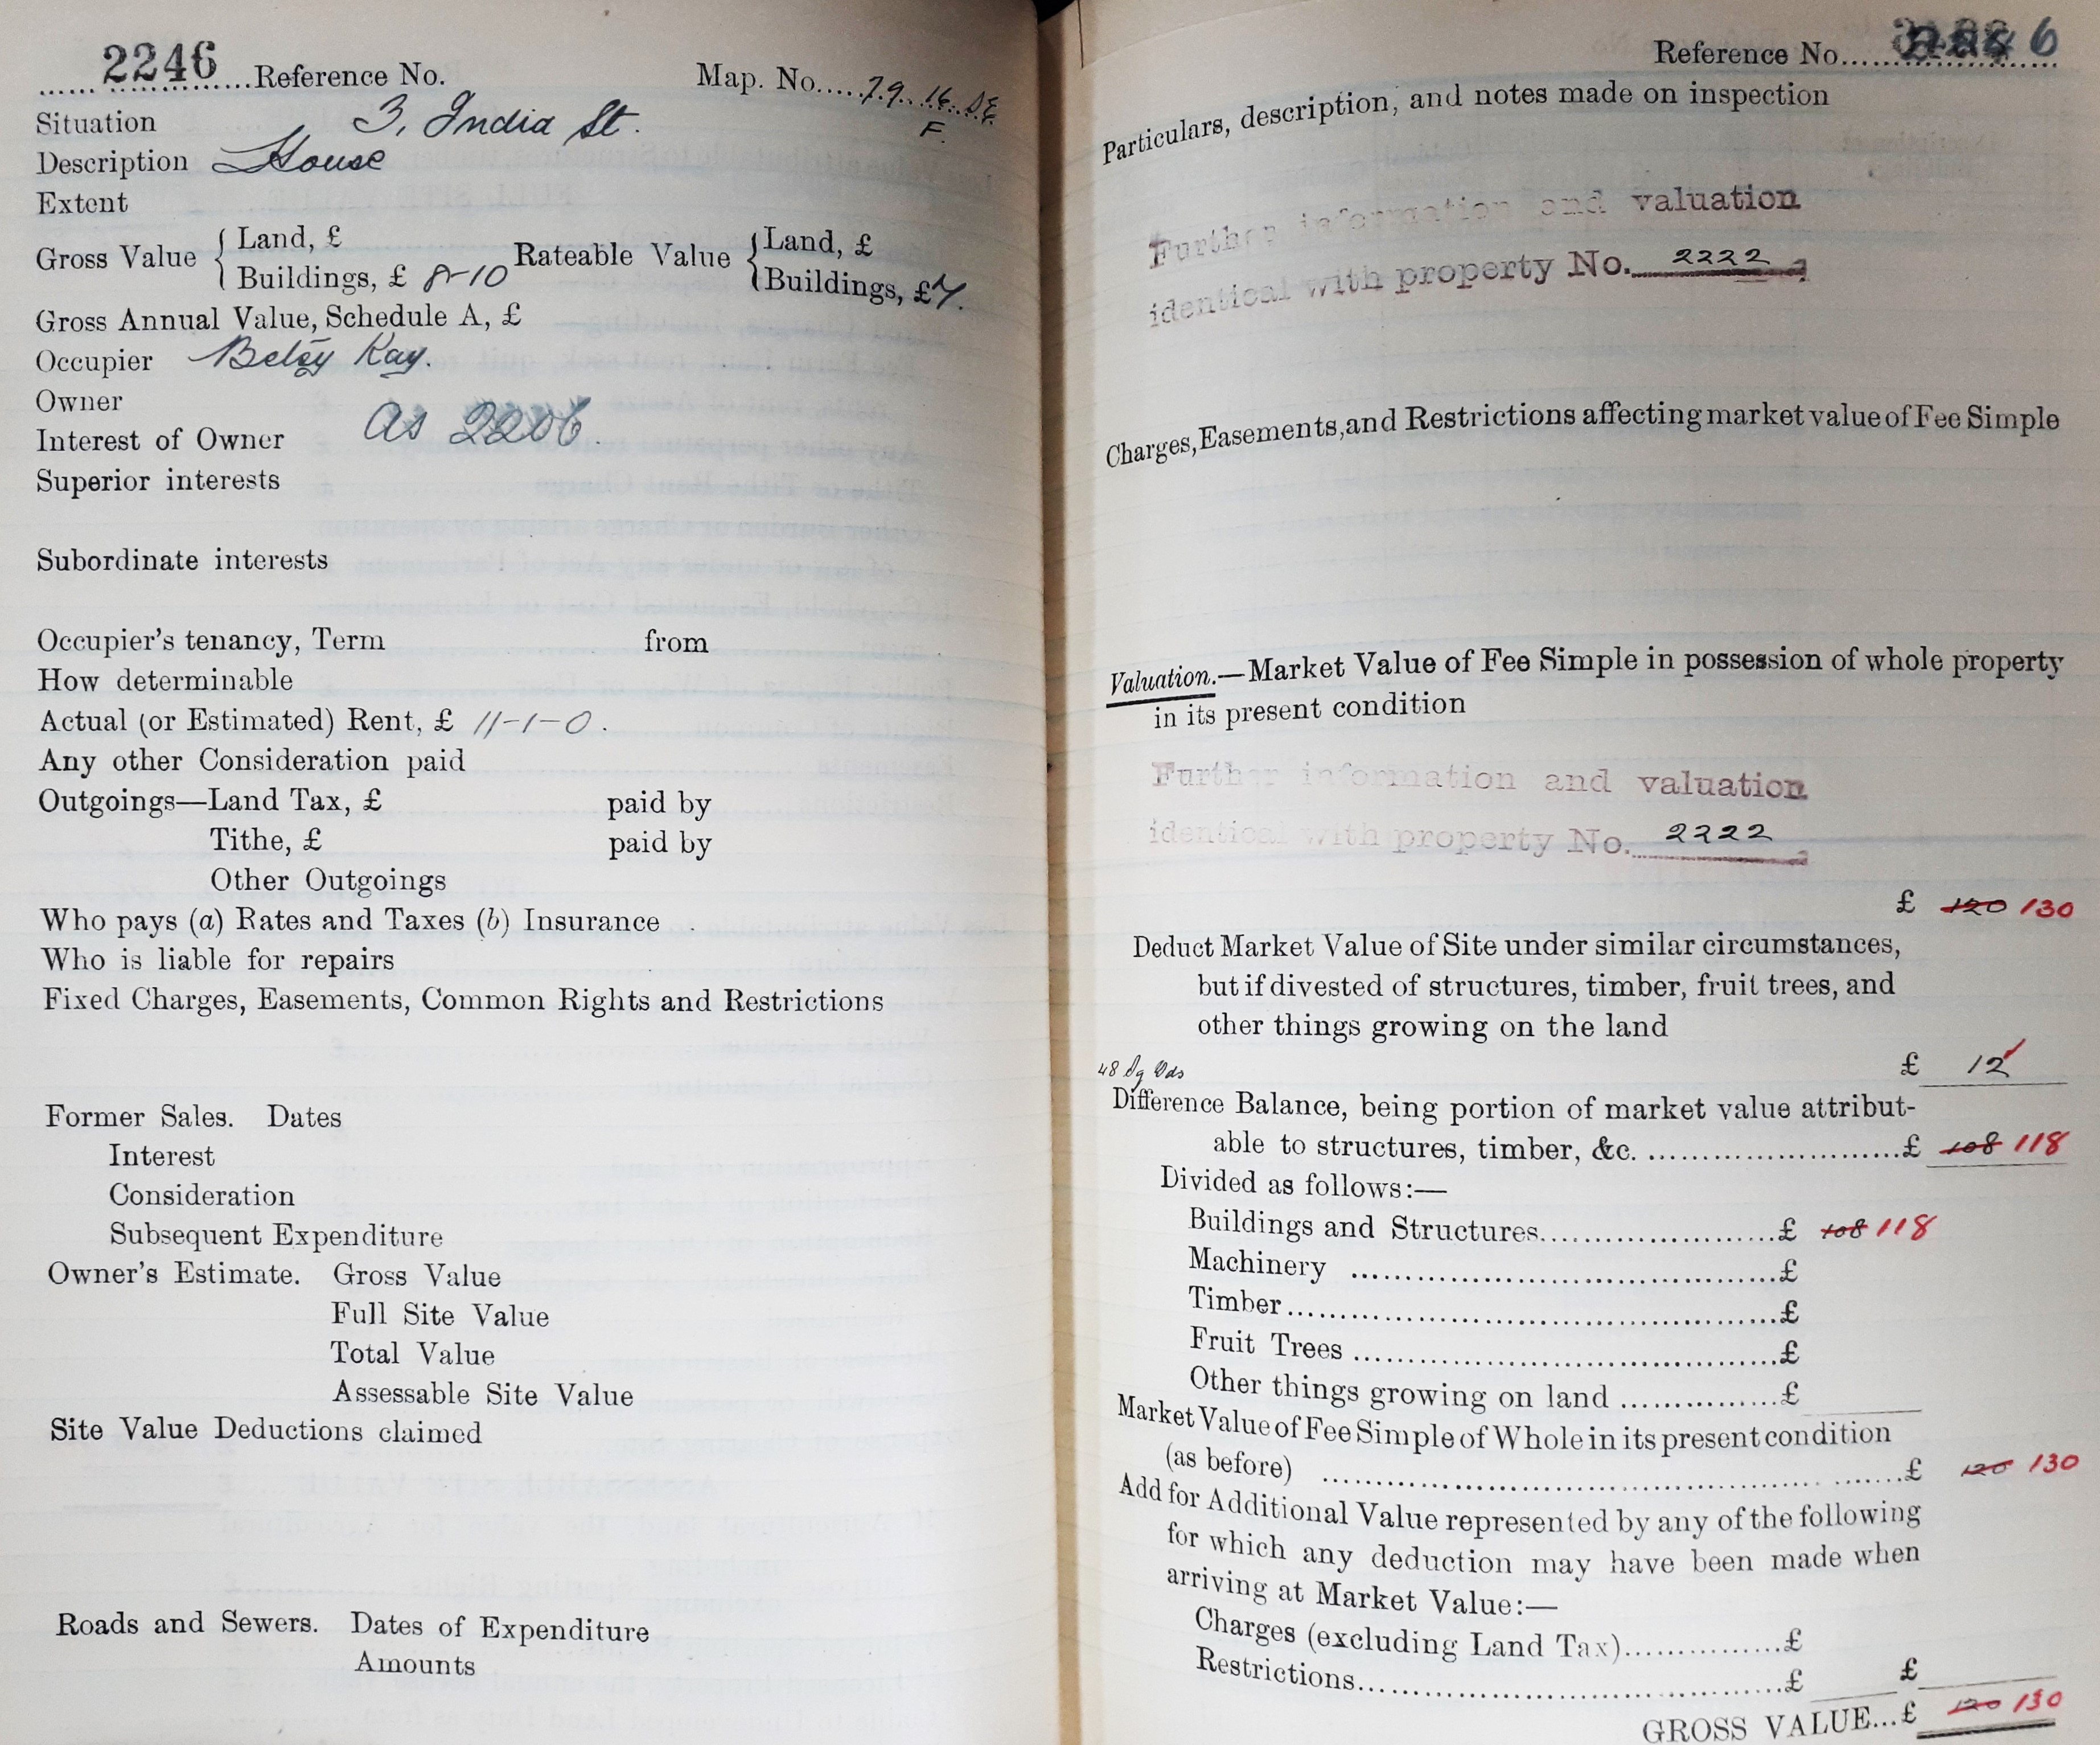 2246 Reference No. Map. No. 79. 16. S.E.
F.
Situation 3, India St.
Description House
Extent
Gross Value { Land, £ Rateable Value { Land, £
Buildings, £ 8-10 Buildings, £7.
Gross Annual Value, Schedule A, £
Occupier Betsy Kay.
Owner
Interest of Owner As 2206.
Superior interests
Subordinate interests
Occupier's tenancy, Term from
How determinable
Actual (or Estimated) Rent, £ 11-1-0.
Any other Consideration paid
Outgoings—Land Tax, £ paid by
Tithe, £ paid by
Other Outgoings
Who pays (a) Rates and Taxes (b) Insurance
Who is liable for repairs
Fixed Charges, Easements, Common Rights and Restrictions
Former Sales. Dates
Interest
Consideration
Subsequent Expenditure
Owner's Estimate. Gross Value
Full Site Value
Total Value
Assessable Site Value
Site Value Deductions claimed
Roads and Sewers. Dates of Expenditure
Amounts
Reference No. 6
Particulars, description, and notes made on inspection
Further information and valuation
identical with property No. 2222
Charges, Easements, and Restrictions affecting market value of Fee Simple
Valuation.—Market Value of Fee Simple in possession of whole property
in its present condition
Further information and valuation
identical with property No. 2222
£ 120 130
Deduct Market Value of Site under similar circumstances,
but if divested of structures, timber, fruit trees, and
other things growing on the land
48 Sq Yds £ 12
Difference Balance, being portion of market value attribut-
able to structures, timber, &c. £ 108 118
Divided as follows:—
Buildings and Structures £ 108 118
Machinery £
Timber £
Fruit Trees £
Other things growing on land £
Market Value of Fee Simple of Whole in its present condition
(as before) £ 120 130
Add for Additional Value represented by any of the following
for which any deduction may have been made when
arriving at Market Value:—
Charges (excluding Land Tax) £
Restrictions £ £
GROSS VALUE...£ 120 130